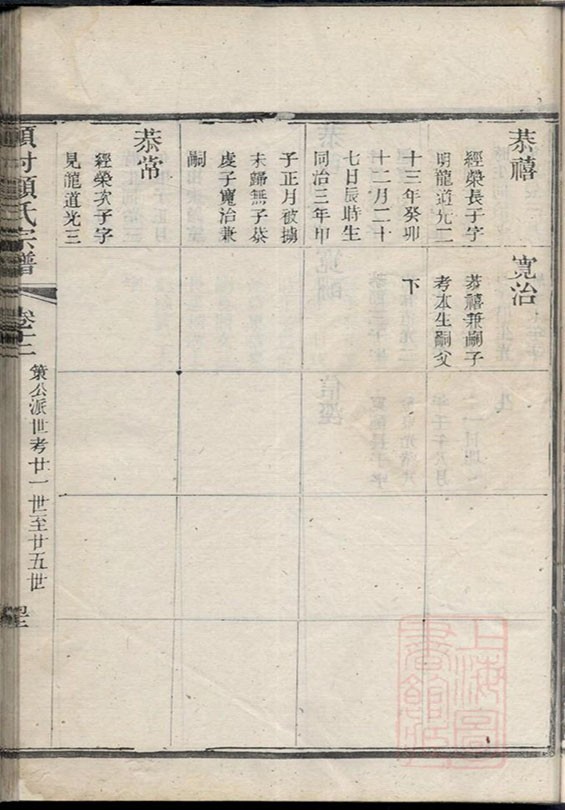 恭禧
經榮長子字
明龍道光二
十三年癸卯
十二月二十
七日辰時生
同治三年甲
子正月被擄
未歸無子恭
虔子寬治兼
嗣
恭常
經榮次子字
見龍道光三
寬治
恭禧兼嗣子
考本生嗣父
下
顧氏宗譜
卷十二
策公派世考廿一世至廿五世
上海圖書館藏